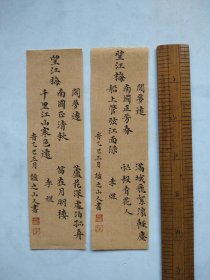 望江梅
閒夢遠
南國正芳春
船上管弦江面淥
滿城飛絮滾輕塵
忙殺看花人
李煜
望江梅
閒夢遠
南國正清秋
千里江山寒色遠
蘆花深處泊孤舟
笛在月明樓
李煜